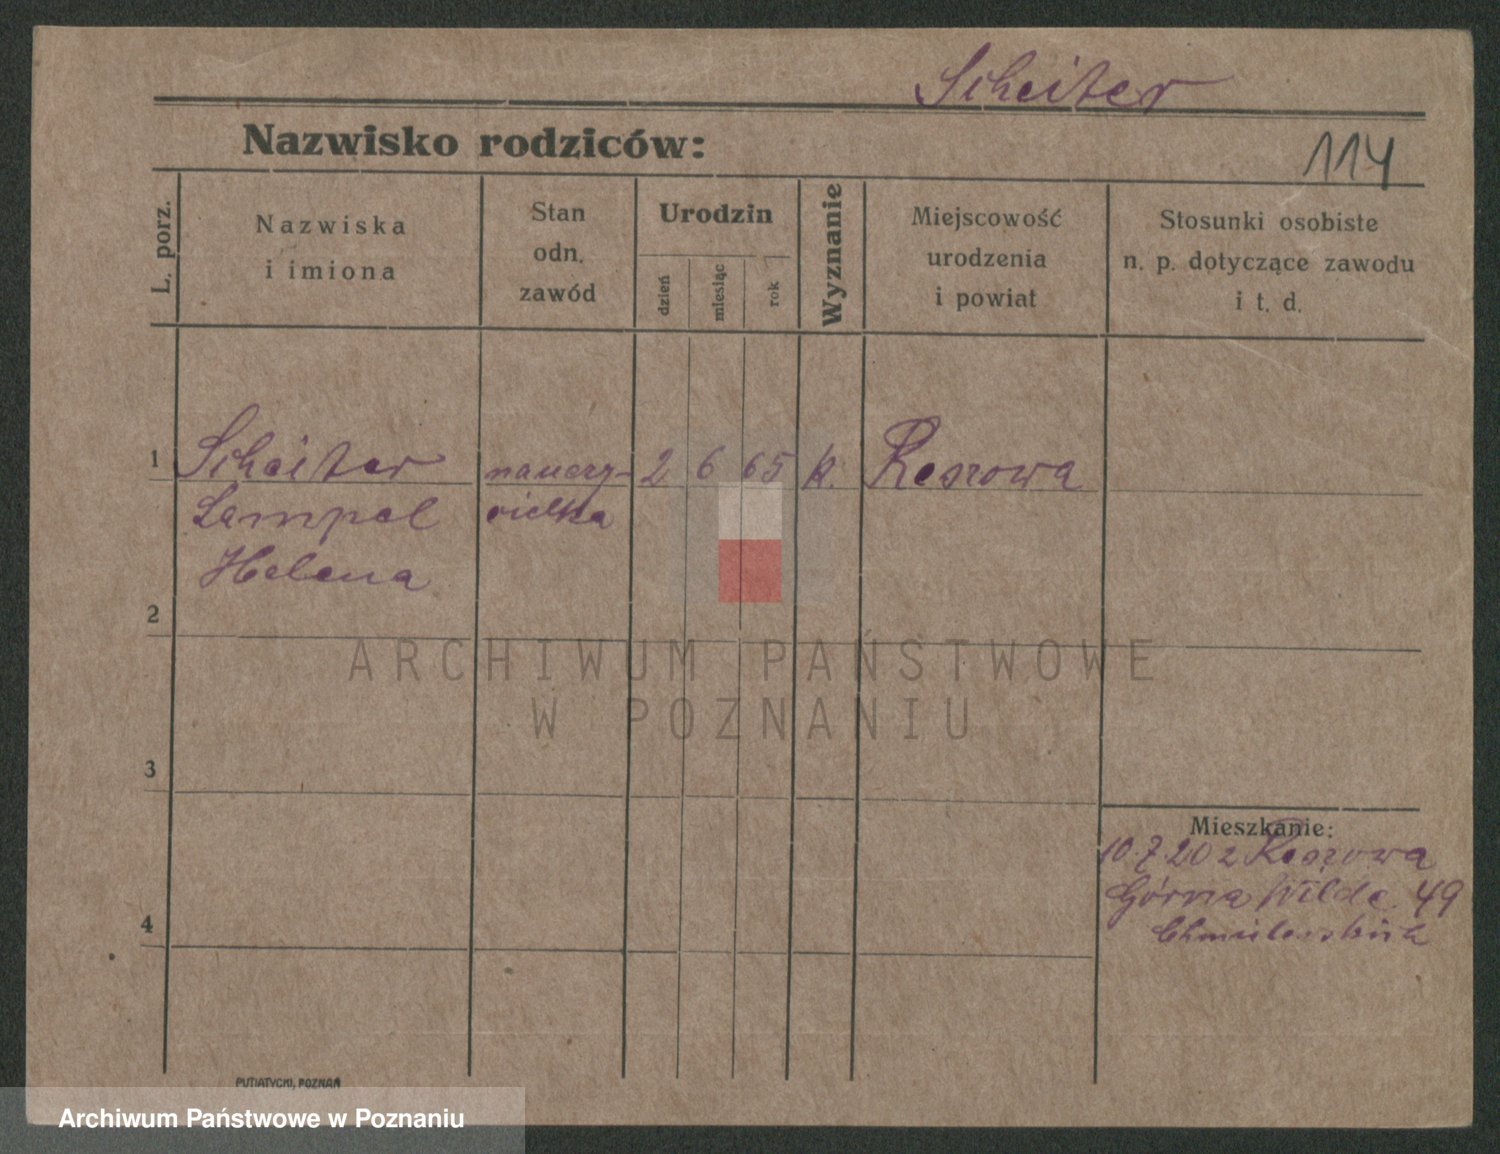 Scheiter
Nazwisko rodziców:
114
L. porz.
Nazwiska
i imiona
Stan
odn.
zawód
Urodzin
dzień
miesiąc
rok
Wyznanie
Miejscowość
urodzenia
i powiat
Stosunki osobiste
n. p. dotyczące zawodu
i t. d.
1 Scheiter nauczy- 2 6 65 k. Reszowa
Lampel cielka
Helena
2
ARCHIWUM PAŃSTWOWE
W POZNANIU
3
Mieszkanie:
10.7.20 z Reszowa
Górna Wilda 49
4
PUTIATYCKI, POZNAŃ
Archiwum Państwowe w Poznaniu